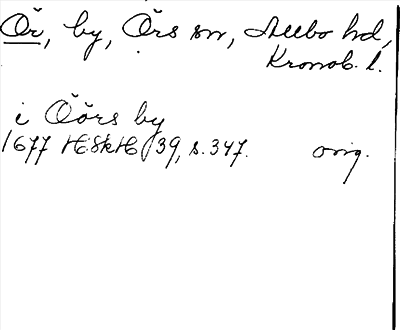 Ör, by, Örs sn, Allbo hd,
Kronob. l.
i Öörs by
1677 HSkH 39, s. 347. orig.